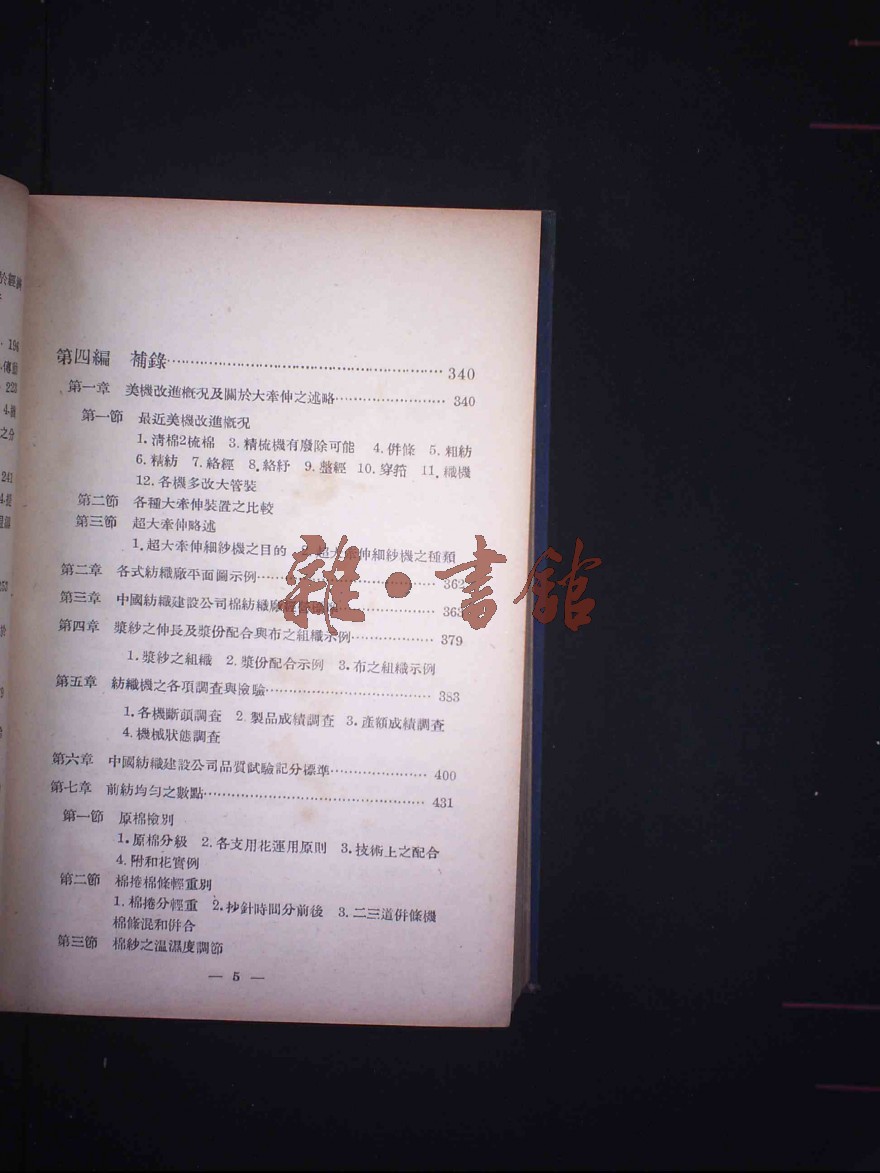 於經
194
傳動
220
4.
之分
241
4.提
253
於
第四編 補錄……………………………………………… 340
第一章 美機改進概況及關於大牽伸之述略………………… 340
第一節 最近美機改進概況
1.淸棉2梳棉 3.精梳機有廢除可能 4.併條 5.粗紡
6.精紡 7.絡經 8.絡紆 9.整經 10.穿筘 11.織機
12.各機多改大管裝
第二節 各種大牽伸裝置之比較
第三節 超大牽伸略述
1.超大牽伸細紗機之目的 2.超大牽伸細紗機之種類
第二章 各式紡織廠平面圖示例…………… 362
第三章 中國紡織建設公司棉紡織廠 363
第四章 漿紗之伸長及漿份配合與布之組織示例……………… 379
1.漿紗之組織 2.漿份配合示例 3.布之組織示例
第五章 紡織機之各項調查與檢驗……………………………… 383
1.各機斷頭調查 2.製品成績調查 3.產額成績調查
4.機械狀態調查
第六章 中國紡織建設公司品質試驗記分標準………………… 400
第七章 前紡均匀之數點………………………………………… 431
第一節 原棉檢別
1.原棉分級 2.各支用花運用原則 3.技術上之配合
4.附和花實例
第二節 棉捲棉條輕重別
1.棉捲分輕重 2.抄針時間分前後 3.二三道併條機
棉條混和併合
第三節 棉紗之溫濕度調節
— 5 —
雜·書館